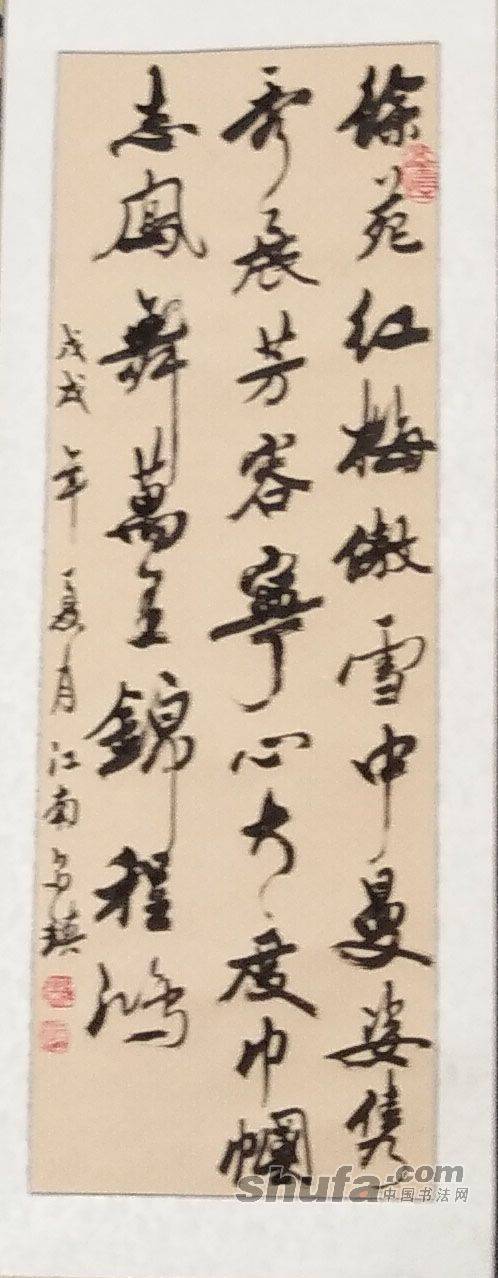 徐苑红梅傲雪中曼姿隽
秀展芳容寧心大度巾幗
志鳳舞萬里錦程鴻
戊戌年夏月江南
shufa.com
中国书法网